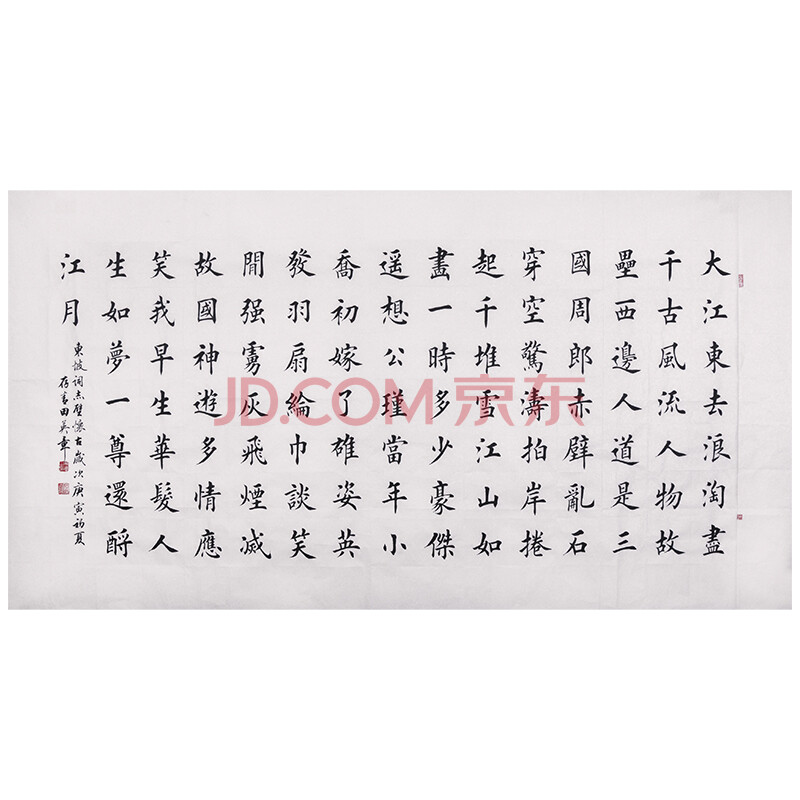 大江東去浪淘盡
千古風流人物故
壘西邊人道是三
國周郎赤壁亂石
穿空驚濤拍岸捲
起千堆雪江山如
畫一時多少豪傑
遥想公瑾當年小
喬初嫁了雄姿英
發羽扇綸巾談笑
間强虜灰飛煙滅
故國神遊多情應
笑我早生華髮人
生如夢一尊還酹
江月
東坡詞赤壁懷古歲次庚寅初夏
存青田英章
JD.COM京东